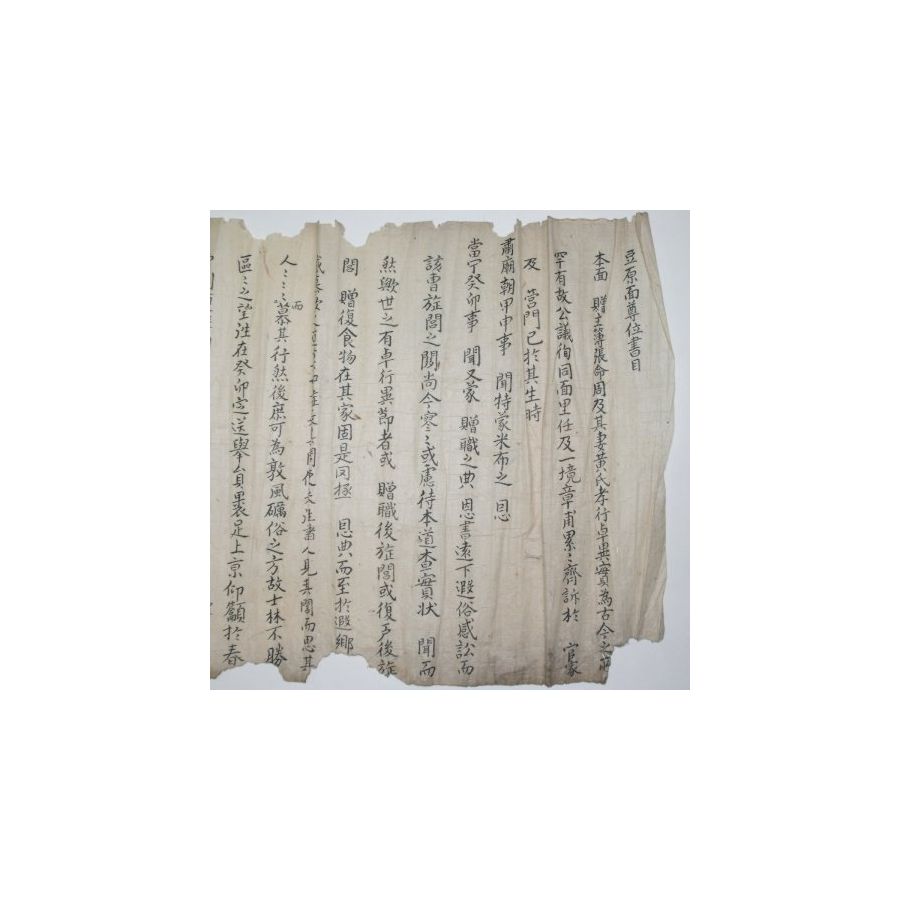 豆原面尊位書目
本面 贈主簿張命周及其妻黃氏孝行卓異實為古今之所
罕有故公議徇同面里任及一境章甫累〻齊訴於 官家
及 營門已於其生時
肅廟朝甲申事 聞特蒙米布之 恩
當宁癸卯事 聞又蒙 贈職之典 恩書遠下遐俗感訟而
該曹旋閭之關尚今寥〻或慮待本道查實狀 聞而
然歟世之有卓行異節者或 贈職後旋閭或復戶後旋
閭 贈復食物在其家固是罔極 恩典而至於遐鄉
人見其閭而思其
人〻〻〻慕其行然後庶可為敦風礪俗之方故士林不勝
而
區〻之望迬在癸卯定送舉員裹足上京仰籲於春